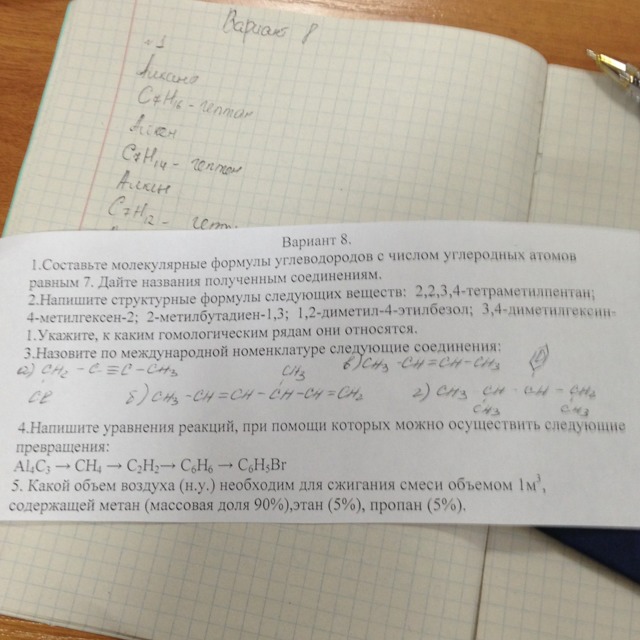 Вариант 8
№1
Алканы
C7H16 - гептан
Алкен
C7H14 - гептен
Алкин
C7H12 -
Вариант 8.
1.Составьте молекулярные формулы углеводородов с числом углеродных атомов
равным 7. Дайте названия полученным соединениям.
2.Напишите структурные формулы следующих веществ: 2,2,3,4-тетраметилпентан;
4-метилгексен-2; 2-метилбутадиен-1,3; 1,2-диметил-4-этилбезол; 3,4-диметилгексин-
1.Укажите, к каким гомологическим рядам они относятся.
3.Назовите по международной номенклатуре следующие соединения:
а) CH2 - C ≡ C - CH3
Cl
CH3
б) CH3 - CH = CH - CH - CH = CH2
в) CH3 - CH = CH - CH3
г) CH3 CH - CH - CH2
CH3 CH3
4.Напишите уравнения реакций, при помощи которых можно осуществить следующие
превращения:
Al4C3 → CH4 → C2H2→ C6H6 → C6H5Br
5. Какой объем воздуха (н.у.) необходим для сжигания смеси объемом 1м3,
содержащей метан (массовая доля 90%),этан (5%), пропан (5%).